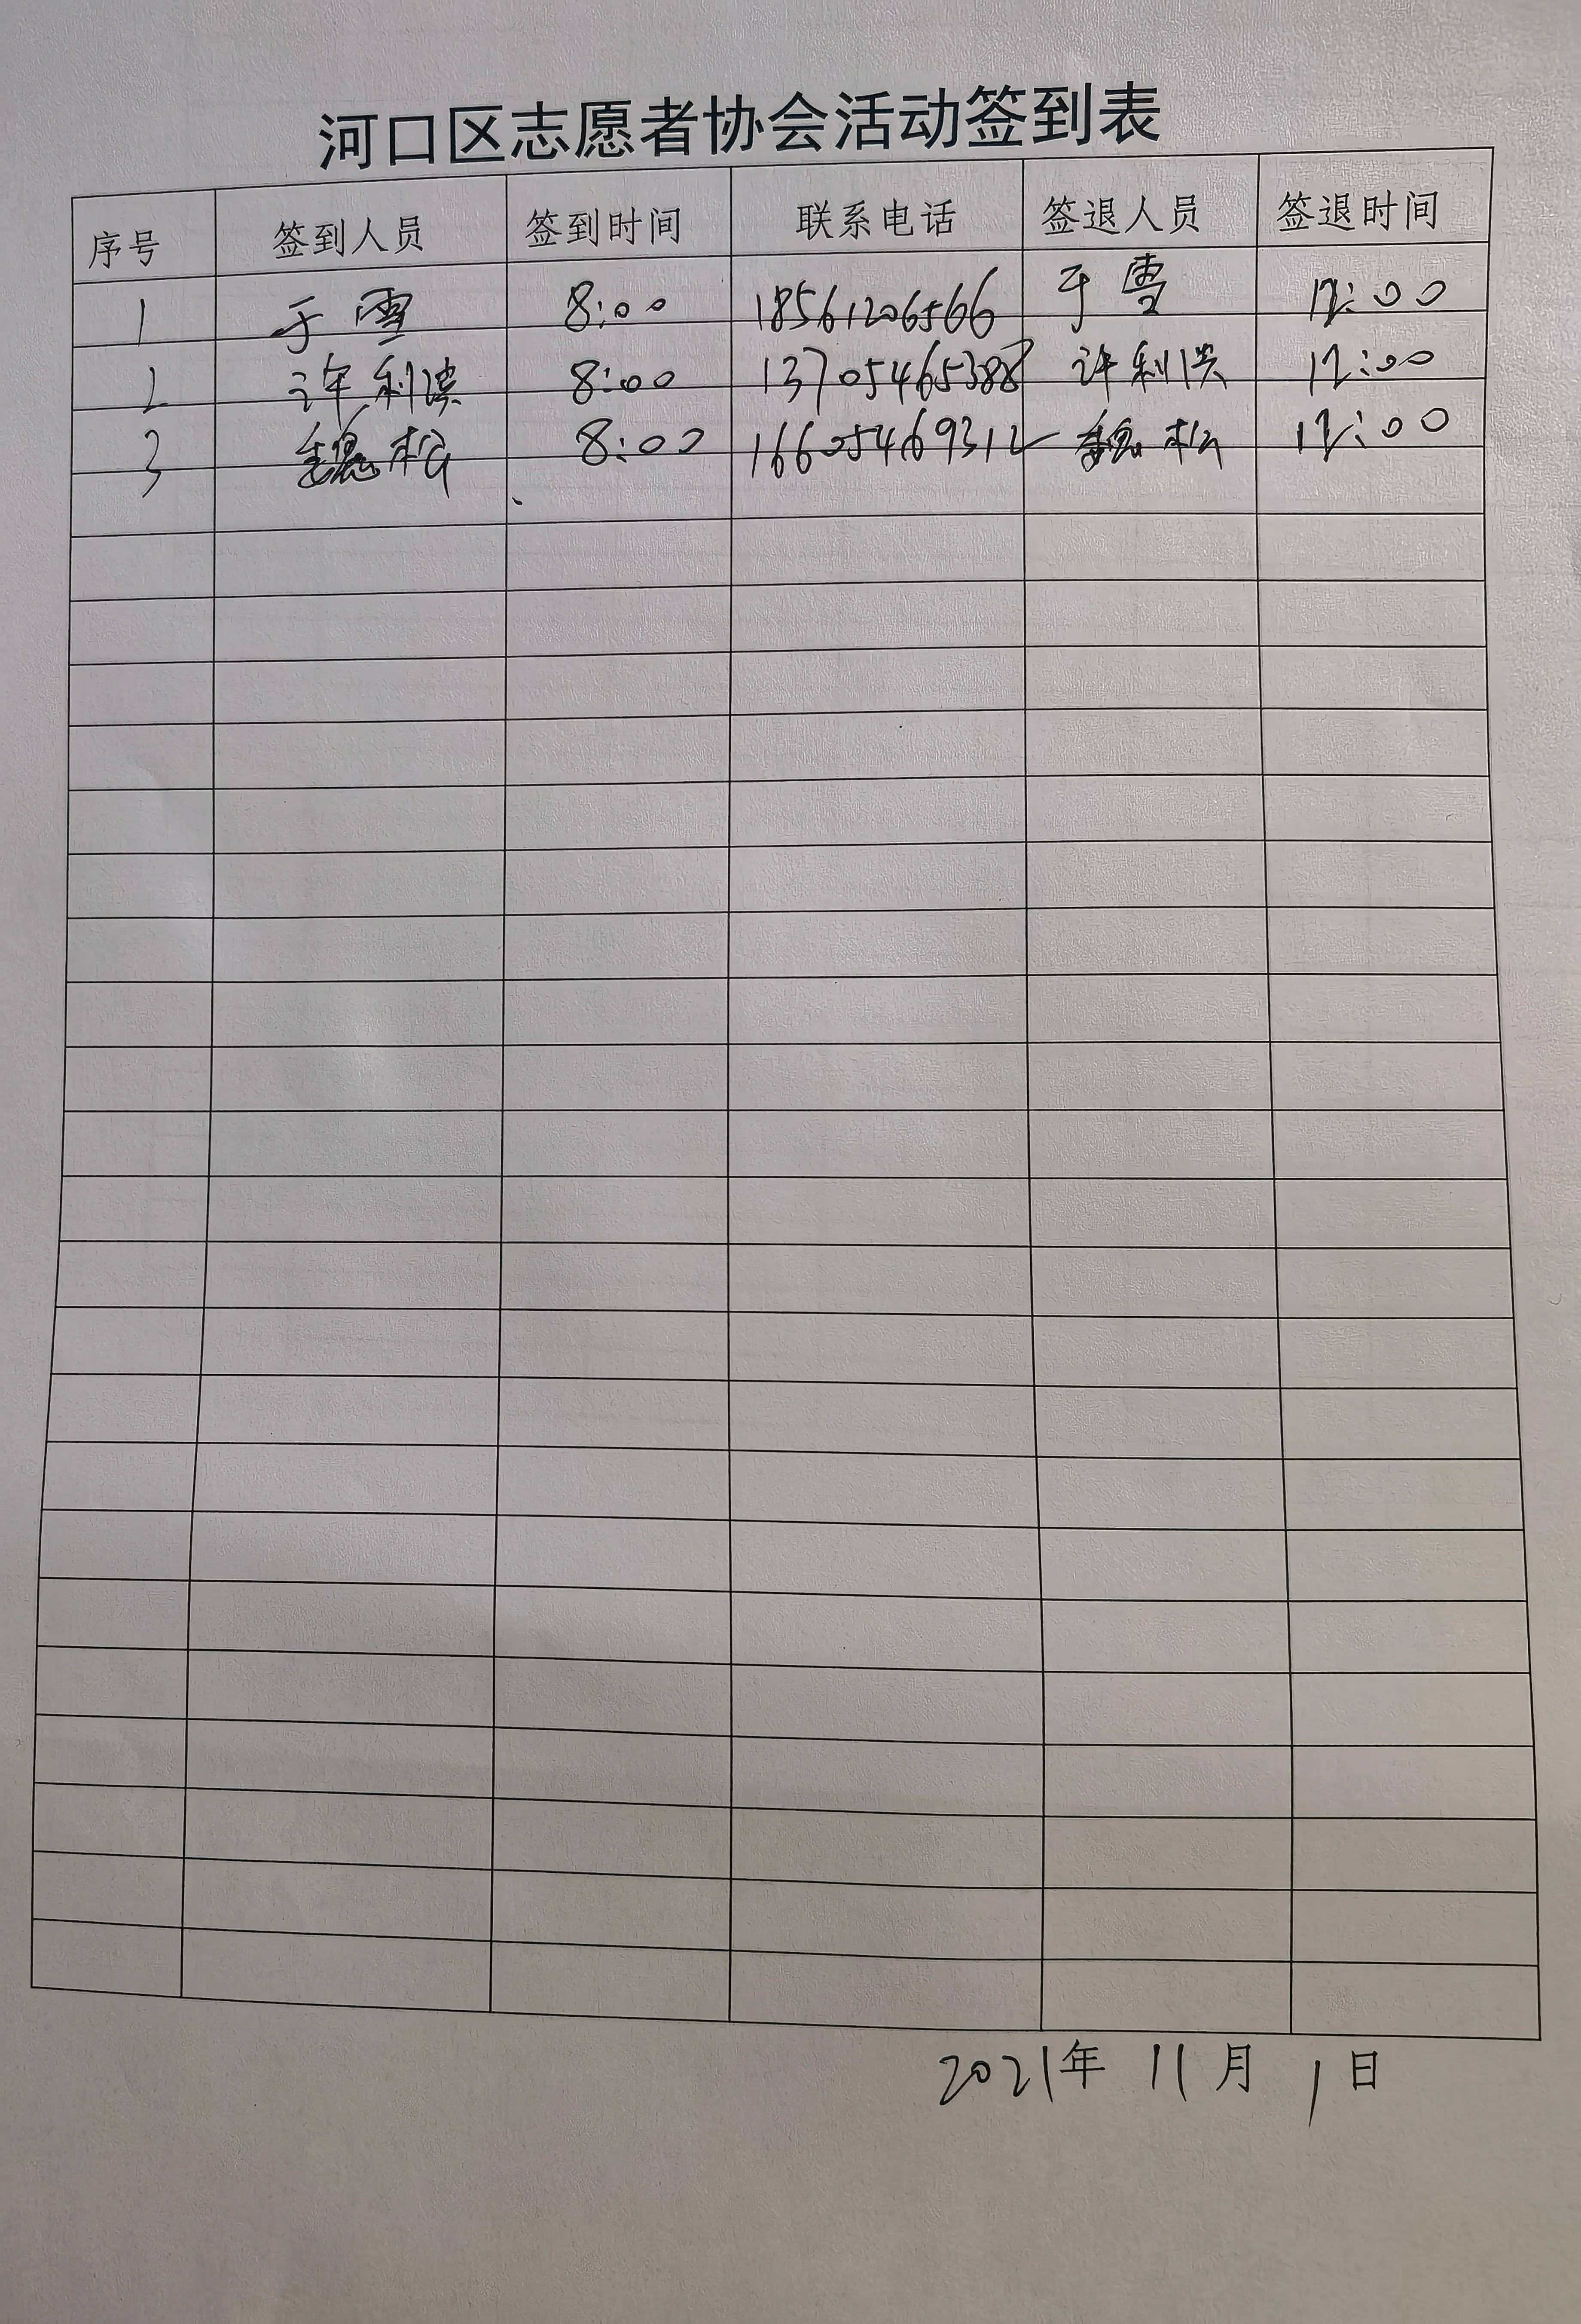 河口区志愿者协会活动签到表
序号 签到人员 签到时间 联系电话 签退人员 签退时间
1 于雪 8:00 18561206566 于雪 12:00
2 许利洪 8:00 13705465388 许利洪 12:00
3 魏松 8:00 16605469312 魏松 12:00
2021年 11月 1日